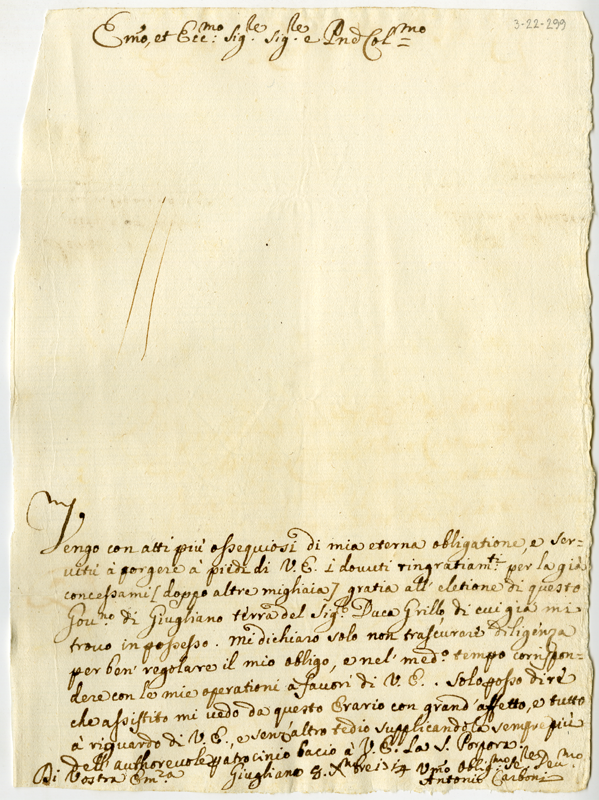 3-22-299
Emo, et Ecc:mo Sig.le Sig.le e Pnd Colmo
Vengo con atti più ossequiosi di mia eterna obligatione, e ser=
vitù à porgere à piedi di V. E. i dovuti ringratiamti. per la già
concessami [doppo altre migliaia] gratia all' eletione di questo
Gou.no di Giugliano terra del Sig.r Duca Grillo di cui già mi
trovo in possesso. Mi dichiaro solo non trascurare diligenza
per ben' regolare il mio obligo, e nel' med.o tempo corrispon=
dere con le mie operationi à favori di V. E.. Solo posso dire
che assistito mi vedo da questo Erario con grand' affetto, e tutto
à riguardo di V. E., e senz' altro tedio supplicandola sempre più
dell' authorevole patrocinio bacio à V. E. La S. Porpora.
Di Vostra Em.za Giugliano 8. Xmbre 1714 Vmo oblig.mo
Antonio Carboni